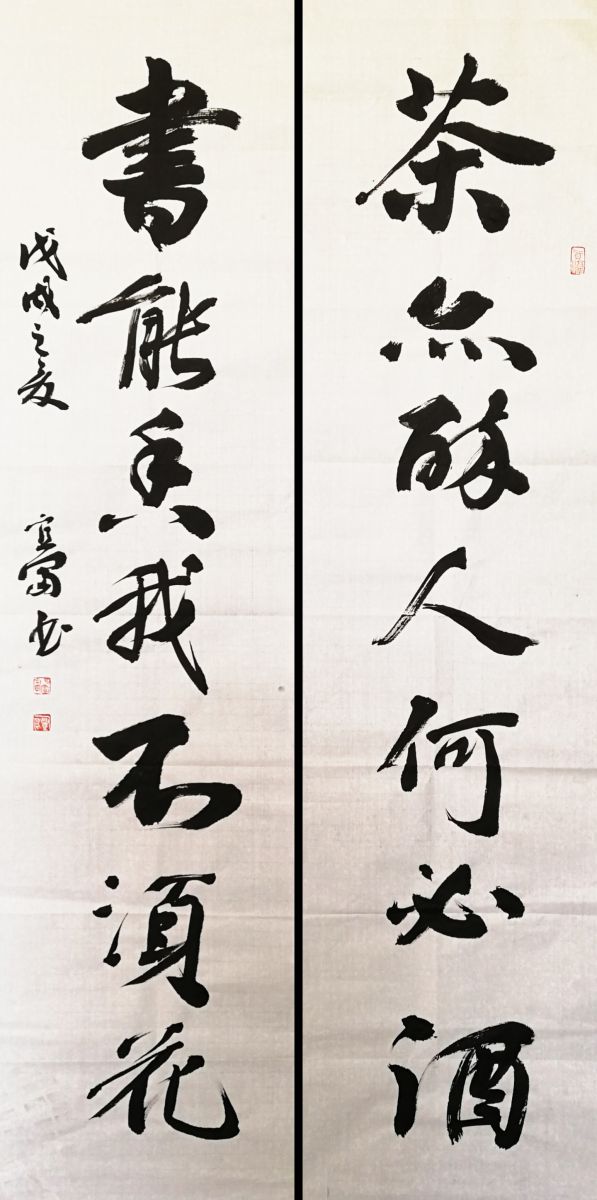 茶亦醉人何必酒
書能香我不須花
戊戌之夏
宜富书